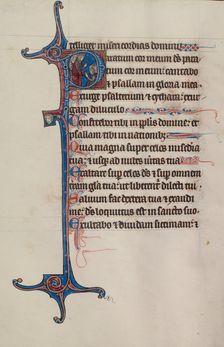 telliget misericordias domini
Paratum cor meum deus para
tum cor meum: cantabo
& psallam in gloria mea
Exurge psalterium & cythara: exur
gam diluculo
Confitebor tibi in populis domine: et
psallam tibi in nationib;
Quia magna super celos misericordia
tua: & usque ad nubes ueritas tua
Exaltare super celos deus & super omnem
terram gloria tua: ut liberentur dilecti tui
Saluum fac dextera tua & exaudi
me: deus loquutus est in sancto suo
Exultabo & diuidam siccimam: &